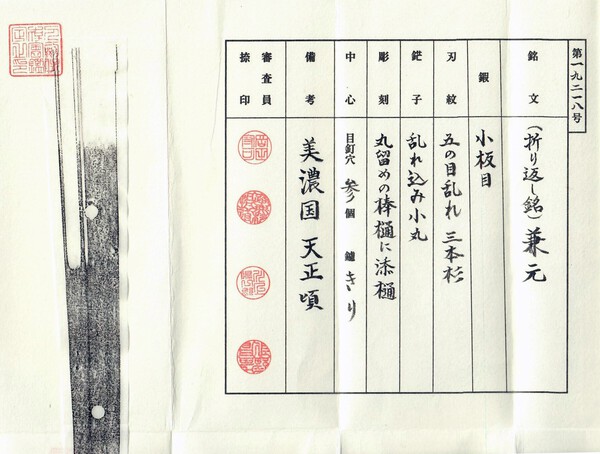 第一九二一八号
銘文 (折り返し銘) 兼元
鍜 小板目
刃紋 五の目乱れ 三本杉
鋩子 乱れ込み小丸
彫刻 丸留めの棒樋に添樋
中心 目釘穴 参個 鑢 きり
備考 美濃国 天正頃
審査員捺印